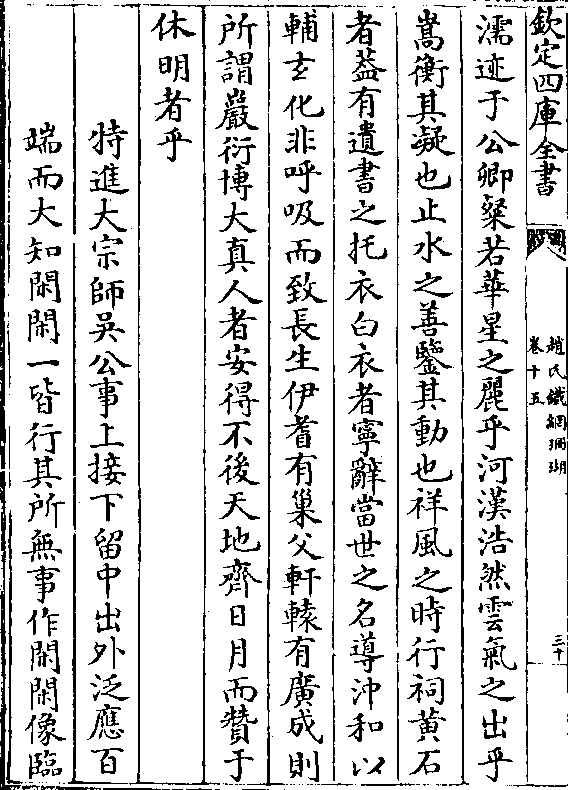 欽定四庫全書
趙氏鐵網珊瑚
卷十五
三十
濡迹于公卿粲若華星之麗乎河漢浩然雲氣之出乎
嵩衡其凝也止水之善鑒其動也祥風之時行祠黄石
者葢有遺書之托衣白衣者寧辭當世之名導沖和以
輔𤣥化非呼吸而致長生伊耆有巢父軒轅有廣成則
所謂嚴衍博大真人者安得不後天地齊日月而贊于
休明者乎
特進大宗師吳公事上接下留中出外泛應百
端而大知閑閑一皆行其所無事作閑閑像臨